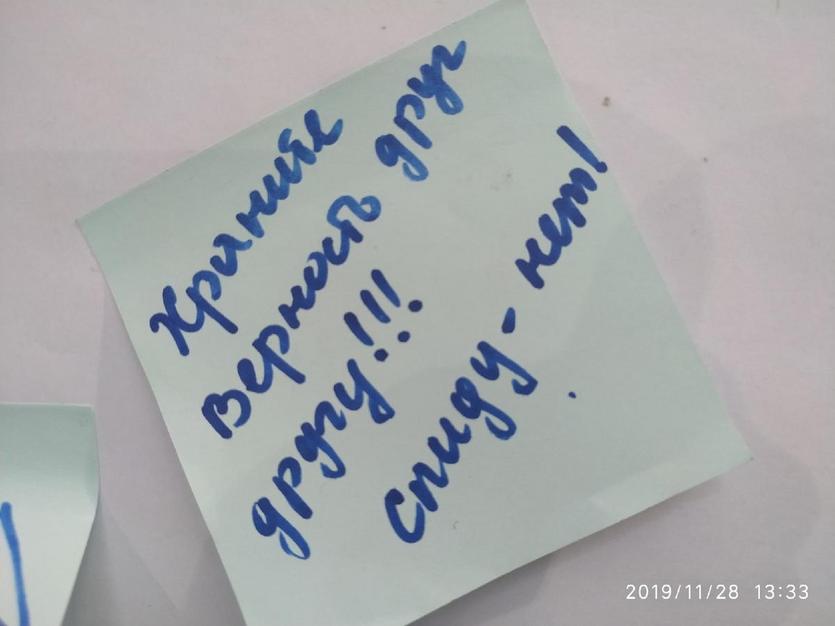 Храните
верность друг
другу!!!
Спиду- нет!
2019/11/28 13:33